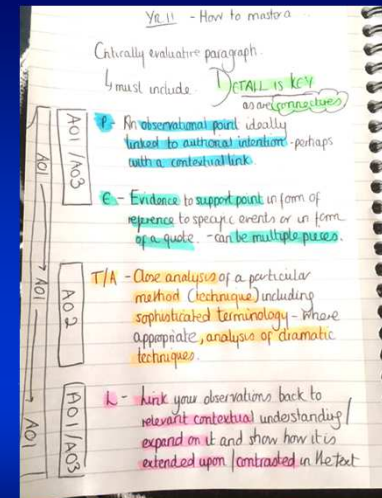 YR 11 - How to master a
Critically evaluative paragraph.
↳ must include. DETAIL IS KEY
as are connectives
AO1/AO3
P - An observational point ideally
linked to authorial intention - perhaps
with a contextual link.
AO1
E - Evidence to support point in form of
reference to specific events or in form
of a quote. - can be multiple pieces.
AO1
AO2
T/A - Close analysis of a particular
method (technique) including
sophisticated terminology - where
appropriate, analysis of dramatic
techniques.
AO1/AO3
AO1
L - Link your observations back to
relevant contextual understanding/
expand on it and show how it is
extended upon / contrasted in the text